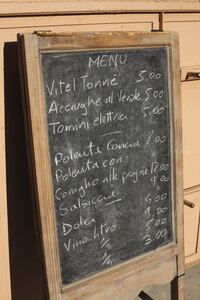 MENU
Vitel Tonné 5,00
Acciughe al Verde 5,00
Tomini elettrici 5,00
Polente Concia 8,00
Polenta con:
Coniglio alle prugne 12,00
Salsiccia 9,00
Dolci 4,00
Vino litro 9,80
1/2 5,00
1/4 3,00